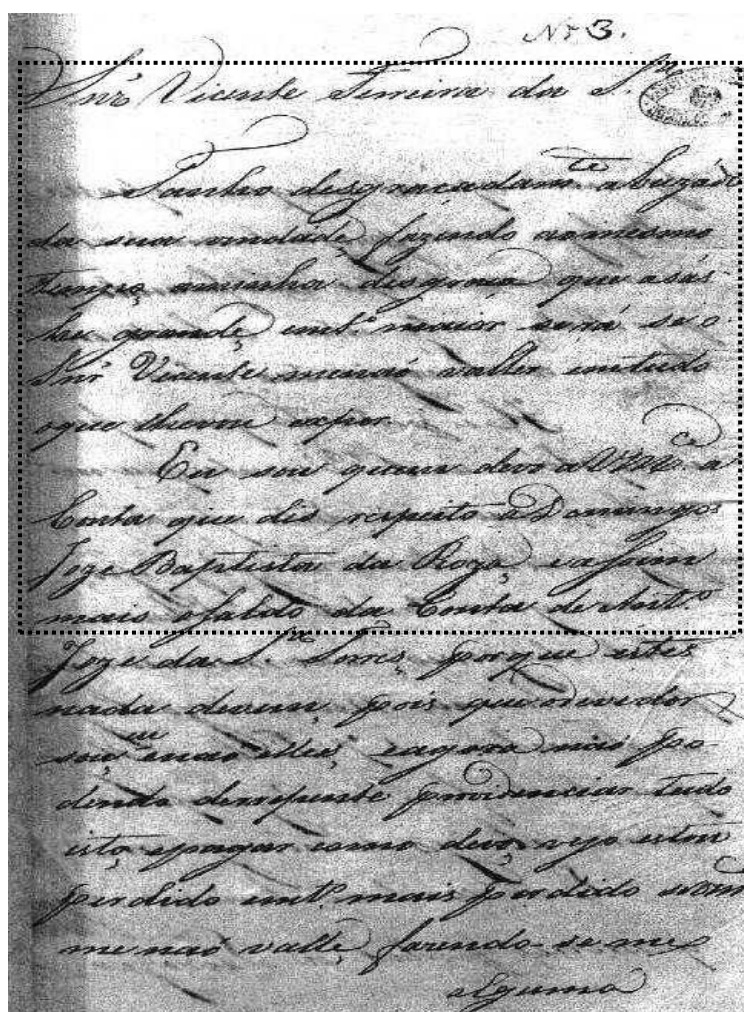 Nº 3.
Snr. Vicente Ferreira da S.ª
Tenho desgraçadam.te abuzádo
da sua vondade, fazendo aomesmo
tempo aminha desgraça que asás
hé grande, emt.º maiór será se o
Snr. Vicente menaó valler emtudo
oque lhevou expor.
Eu sou quem devo a Vmce a
Conta que dis respeito a Domingos
Joze Baptista da Roza, eaSim
mais oSaldo da Conta de Ant.º
Joze da S.ª Torres, porque estes
nada devem, pois que odevedor
sou eu enaó elles, eagora naó po-
dendo derrepente providenciar tudo
isto, epagar como devo, vejo estou
perdido emt.º mais perdido se
me naó valle, fazendo-se-me
alguma